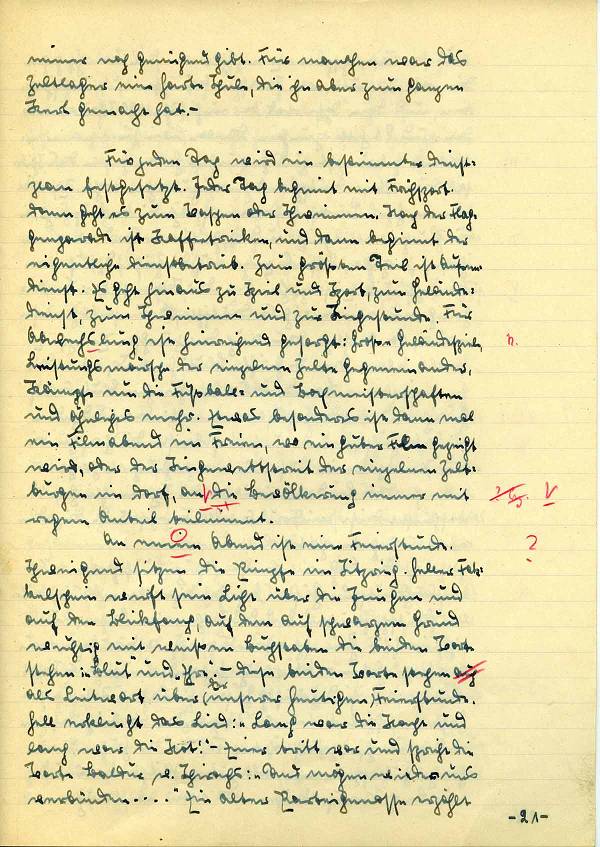 immer noch genügend gibt. Für manchen war das
Zeltlager eine harte Schule, die ihn aber zum ganzen
Kerl gemacht hat.-
Für jeden Tag wird ein bestimmter Dienst-
plan festgesetzt. Jeder Tag beginnt mit Frühsport.
Dann geht es zum Waschen oder Schwimmen. Nach der Flag-
genparade ist Kaffeetrinken, und dann beginnt der
eigentliche Dienstbetrieb. Zum größten Teil ist Außen-
dienst. Es geht hinaus zu Spiel und Sport, zum Gelände-
dienst, zum Schwimmen und zur Singestunde. Für
Abwechslung ist hinreichend gesorgt: Große Geländespiele, n.
Leistungsmärsche der einzelnen Zelte gegeneinander,
Kämpfe um die Fußball- und Boxmeisterschaften
und ähnliches mehr. Etwas besonderes ist dann mal
ein Filmabend im Freien, wo ein guter Film gezeigt
wird, oder der Singewettstreit der einzelnen Zelt-
burgen im Dorf, an die Bevölkerung immer mit V
regem Anteil teilnimmt.
An einem Abend ist eine Feierstunde. ?
Schweigend sitzen die Pimpfe im Sitzring. Heller Fak-
kelschein wirft sein Licht über die Jungen und
auf den Blickfang, auf dem auf schwarzem Grund
wuchtig mit weißen Buchstaben die beiden Worte
stehen: „Blut" und „Ehre".- Diese beiden Worte stehen auch
als Leitwort über der unserer heutigen Feierstunde.
Hell erklingt das Lied: „Lang war die Nacht und
lang war die Not!"- Einer tritt vor und spricht die
Worte Baldur v. Schirachs: „Und mögen wieder uns
verbünden...." Ein alter Parteigenosse erzählt
-21-